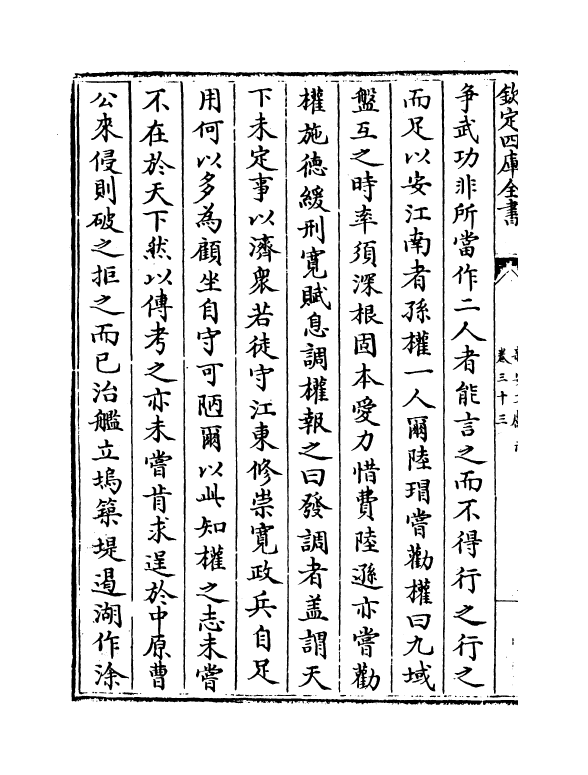 欽定四庫全書
卷三十三
争武功非所當作二人者能言之而不得行之行之
而足以安江南者孫權一人爾陸瑁嘗勸權曰九域
盤互之時率須深根固本愛力惜費陸遜亦嘗勸
權施德緩刑寛賦息調權報之曰發調者盖謂天
下未定事以濟衆若徒守江東修崇寛政兵自足
用何以多為顧坐自守可陋爾以此知權之志未嘗
不在於天下然以傳考之亦未嘗肯求逞於中原曹
公來侵則破之拒之而已治艦立塢築堤遏湖作涂